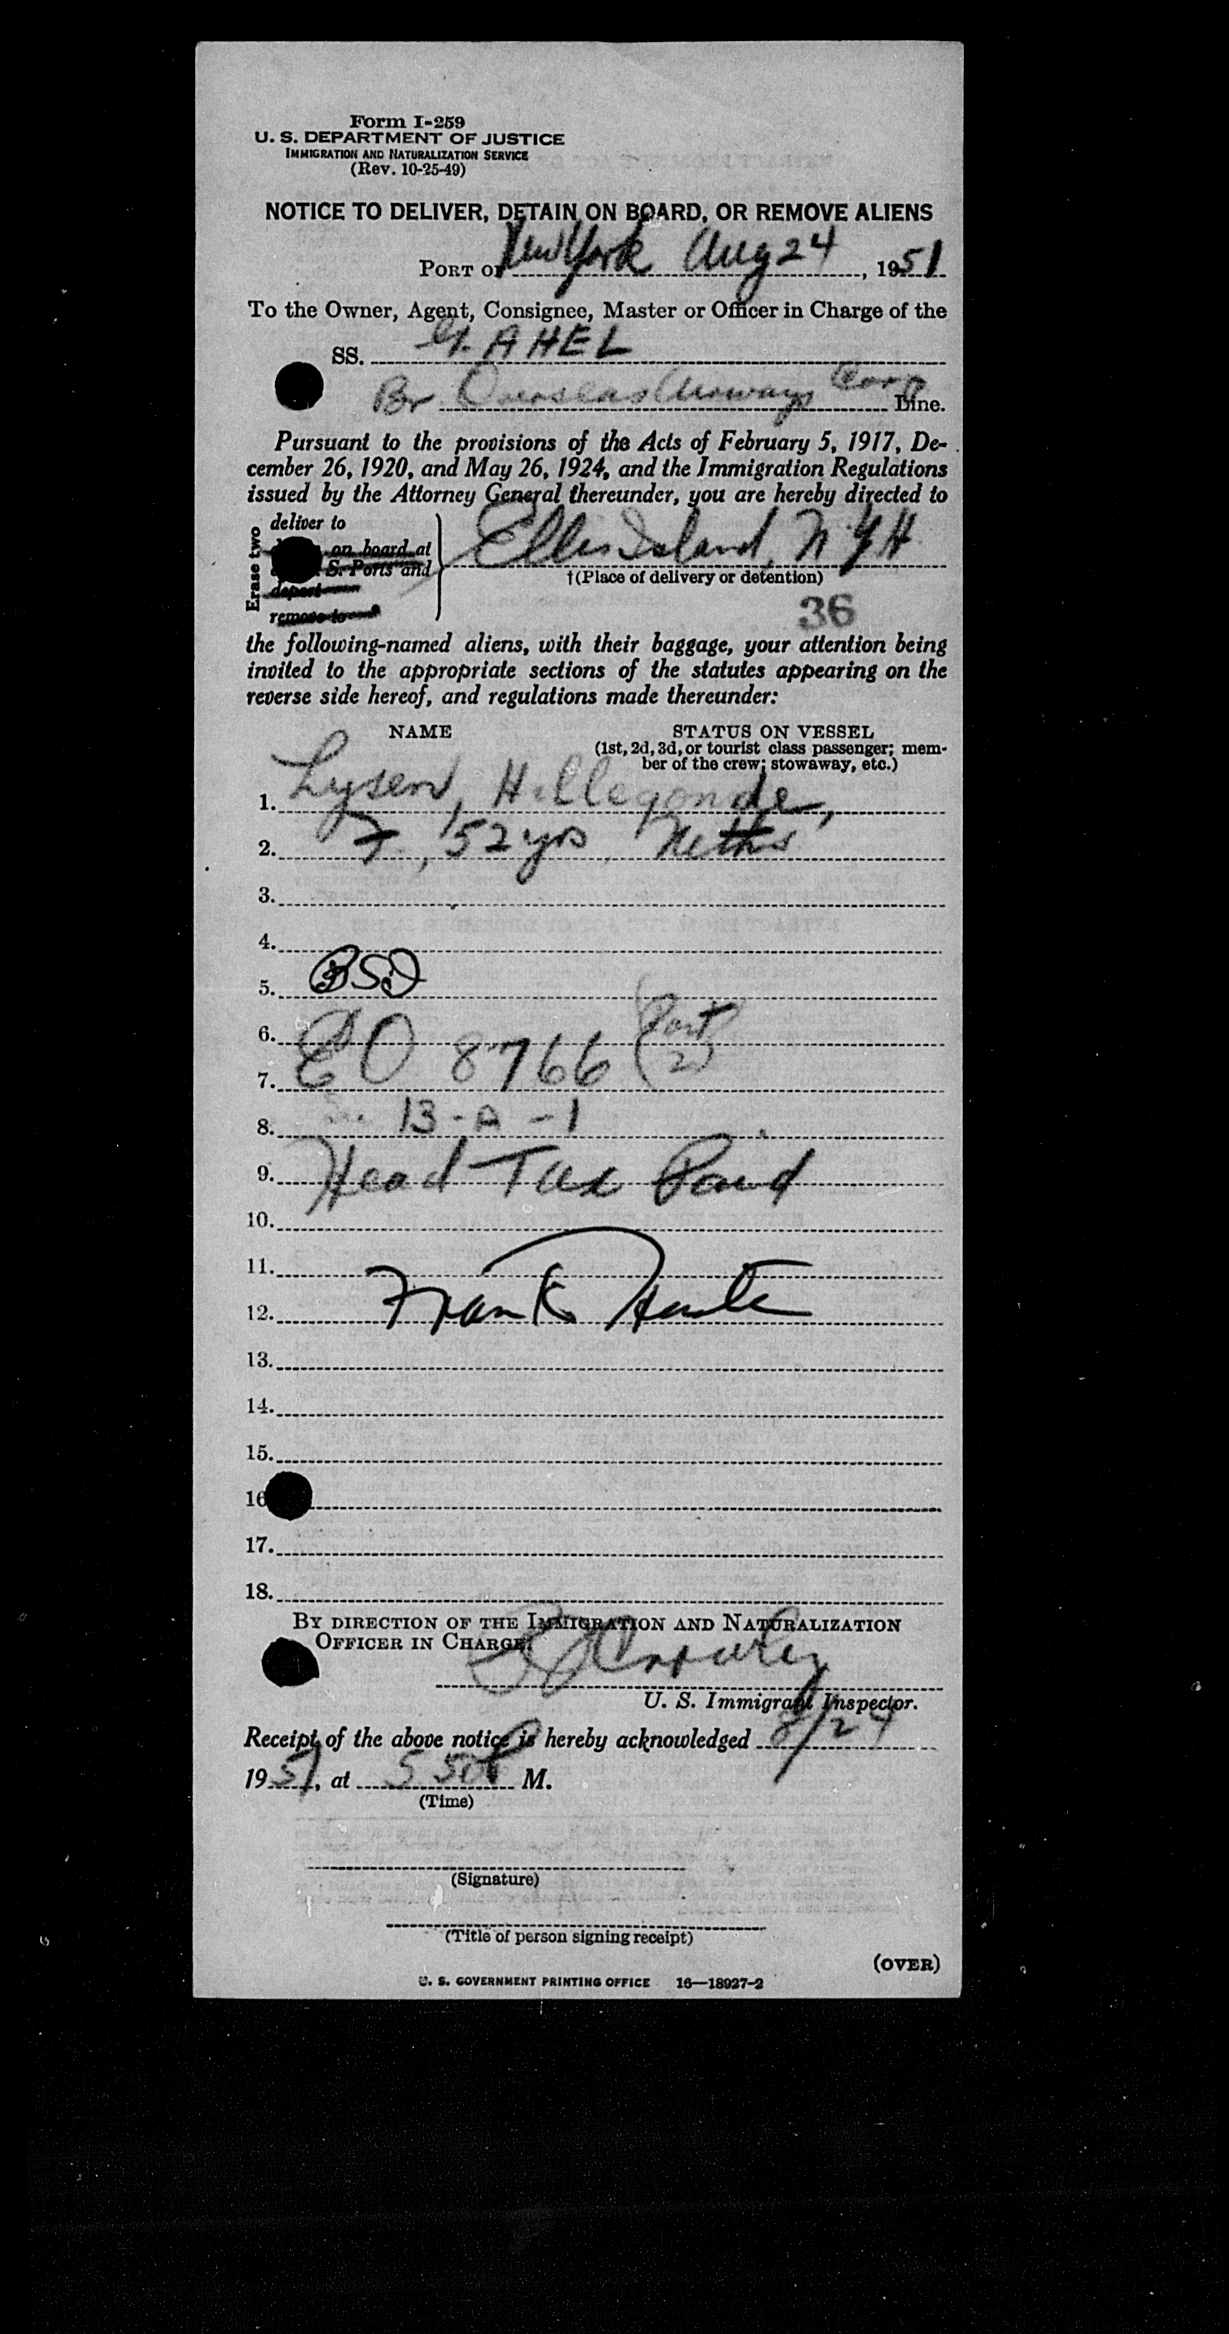 Form I-259
U. S. DEPARTMENT OF JUSTICE
IMMIGRATION AND NATURALIZATION SERVICE
(Rev. 10-25-49)
NOTICE TO DELIVER, DETAIN ON BOARD, OR REMOVE ALIENS
PORT OF New York Aug 24, 1951
To the Owner, Agent, Consignee, Master or Officer in Charge of the
SS. G. AHEL
Br Overseas Airways Corp Line.
Pursuant to the provisions of the Acts of February 5, 1917, De-
cember 26, 1920, and May 26, 1924, and the Immigration Regulations
issued by the Attorney General thereunder, you are hereby directed to
Erase two
deliver to
on board at
S. Ports and
deport
remove to
Ellis Island, N.Y.H.
†(Place of delivery or detention)
36
the following-named aliens, with their baggage, your attention being
invited to the appropriate sections of the statutes appearing on the
reverse side hereof, and regulations made thereunder:
NAME STATUS ON VESSEL
(1st, 2d, 3d, or tourist class passenger; mem-
ber of the crew; stowaway, etc.)
1. Lysen, Hillegonde,
2. F., 52 yrs, Neths
3.
4.
5. BSI
6.
7. EO 8766 (Part 2)
8. S. 13-A-1
9. Head Tax Paid
10.
11.
12. Frank
13.
14.
15.
16
17.
18.
BY DIRECTION OF THE IMMIGRATION AND NATURALIZATION
OFFICER IN CHARGE:
U. S. Immigrant Inspector.
Receipt of the above notice is hereby acknowledged 8/24
1951, at 5 50 P M.
(Time)
(Signature)
(Title of person signing receipt)
(OVER)
U. S. GOVERNMENT PRINTING OFFICE 16—18927-2